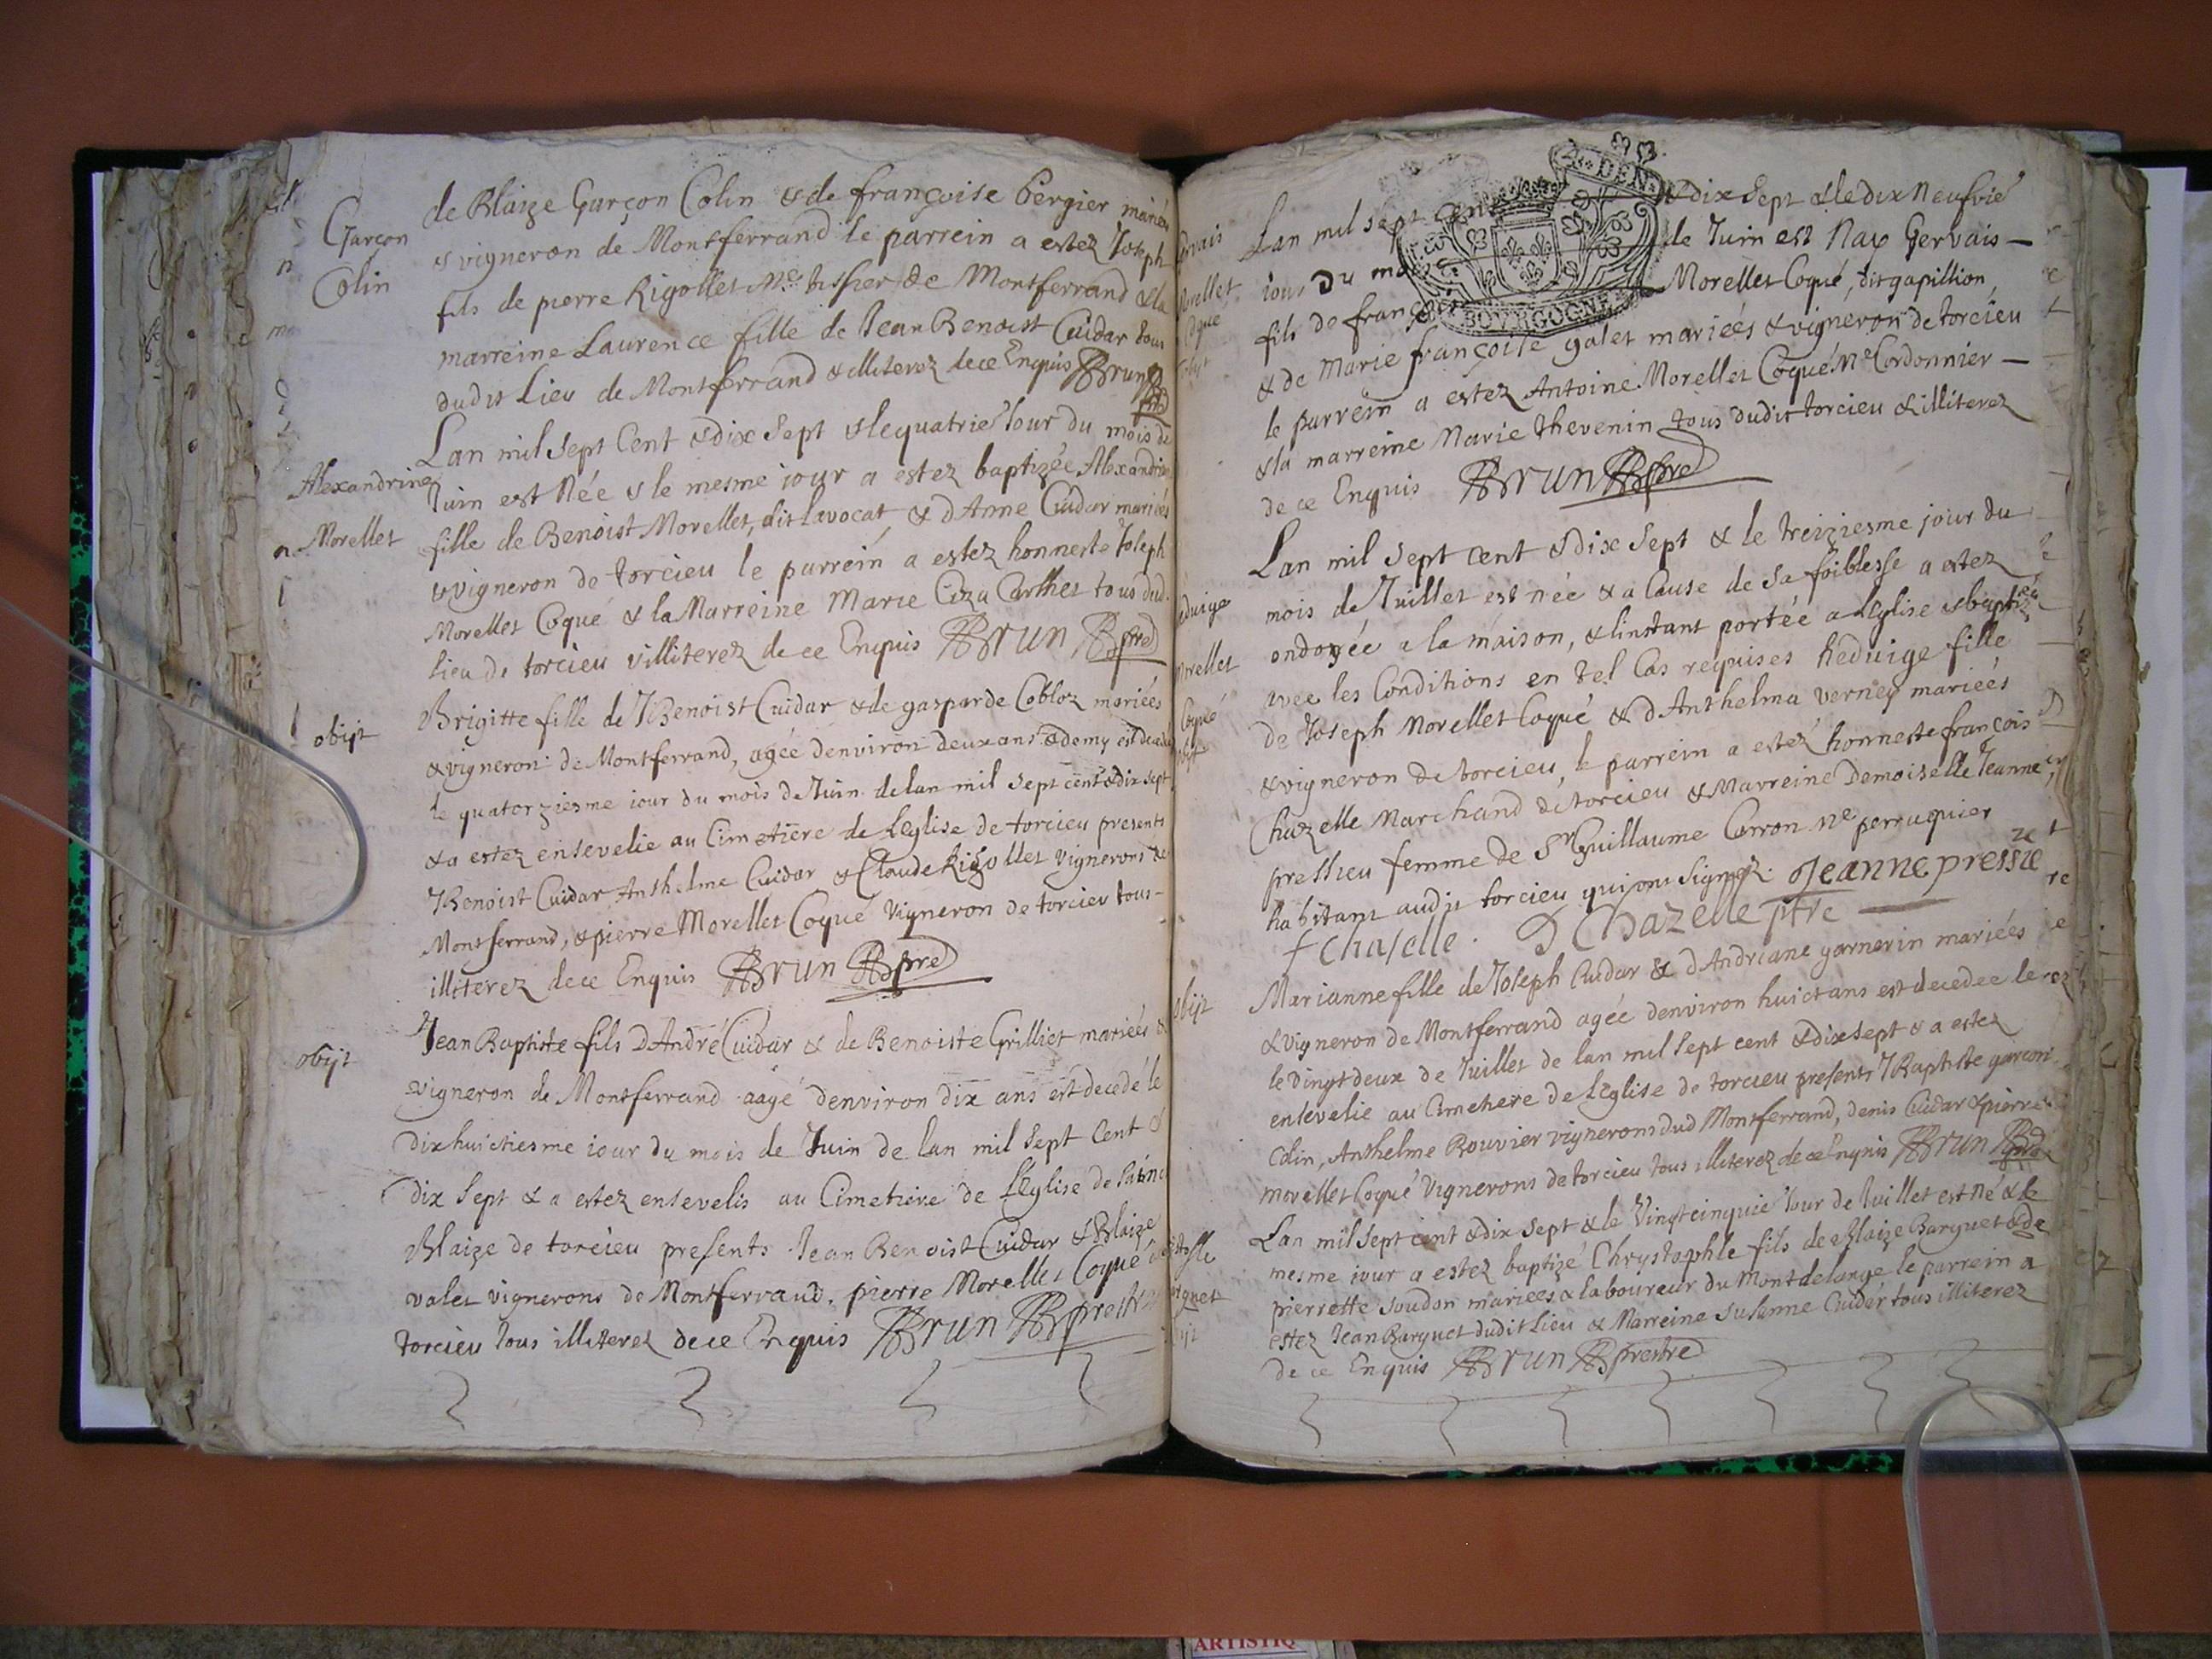 Garçon
Colin
de Blaize Garçon Colin & de françoise bergier mariées
& vigneron de Montferrand le parrein a estez Joseph
fils de pierre Rigollet Me tissier de Montferrand & la
marreine Laurence fille de Jean Benoist Cuidar tous
dudit Lieu de Montferrand & illiterez de ce Enquis Brun
Lan mil sept Cent & dix sept & le quatrie Jour du mois de
Alexandrine
Morellet
Juin est Née & le mesme jour a estez baptizée Alexandrine
fille de Benoist Morellet, dit Lavocat & dAnne Cuidar mariées
& vigneron de torcieu le parrein a estez honneste Joseph
Morellet Coqué & la Marreine Marie Carthet tous dud.
lieu de torcieu & illiterez de ce Enquis Brun pre
obijt
Brigitte fille de JBenoist Cuidar & de gasparde Cobloz mariées
& vigneron de Montferrand, agée denviron deux ans & demy est decedée
le quatorziesme jour du mois de Juin de lan mil sept cent & dix sept
& a estez ensevelie au Cimetiere de LEglise de torcieu presents
JBenoist Cuidar, Anthelme Cuidar & Claude Rigollet vignerons de
Montferrand, & pierre Morellet Coqué vigneron de torcieu tous
illiterez de ce Enquis Brun pre
obijt
Jean Baptiste fils dAndré Cuidar & de Benoiste Grilliet mariées &
vigneron de Montferrand aagé denviron dix ans est decedé le
dix huictiesme jour du mois de Juin de lan mil sept Cent &
dix sept & a estez ensevelis au Cimetiere de LEglise de Sainct
Blaize de torcieu presents Jean Benoist Cuidar & Blaize
valet vignerons de Montferrand, pierre Morellet Coqué
torcieu tous illiterez de ce Enquis Brun prestre
Lan mil sept Cent & dix sept & le dix Neufvie
jour du mois de Juin est Nay Gervais
fils de françois Morellet Coqué, dit gapillion
& de Marie françoise galet mariées & vigneron de torcieu
le parrein a estez Antoine Morellet Coqué Me Cordonnier
& la marreine Marie thevenin tous dudit torcieu & illiterez
de ce Enquis Brun pre
Lan mil sept cent & dix sept & le treiziesme jour du
mois de Juillet est née & a Cause de sa foiblesse a estez
ondoyée a la maison, & linstant portée a LEglise & baptizée
avec les Conditions en tel Cas requises heduige fille
de Joseph Morellet Coqué & dAnthelma verney mariées
& vigneron de torcieu, le parrein a estez honneste françois
Chazelle Marchand de torcieu & Marreine Demoiselle Jeanne
pressieu femme de Sr Guillaume Carron Me perruquier
habitant audit torcieu qui ont signez. Jeanne pressie
f Chaselle. D Chazelle ptre
obijt
Marianne fille de Joseph Cuidar & dAndriane garnerin mariées
& vigneron de Montferrand agée denviron huict ans est decedee le
le vingt deux de Juillet de lan mil sept cent & dix sept & a estez
ensevelie au Cimetiere de LEglise de torcieu presents JBaptiste garcon
Colin, Anthelme Rouvier vignerons dud Montferrand, denis Cuidar & pierre
morellet Coqué vignerons de torcieu tous illiterez de ce Enquis Brun pre
Lan mil sept cent & dix sept & le Vingt cinquie Jour de Juillet est Né & le
mesme jour a estez baptizé Chrystophle fils de Blaize Barquet & de
pierrette soudon mariees & laboureur du Mont delange le parrein a
estez Jean Barquet dudit Lieu & Marreine susanne Cuider tous illiterez
de ce Enquis Brun prestre
BOURGOGNE
ARTISTIQ